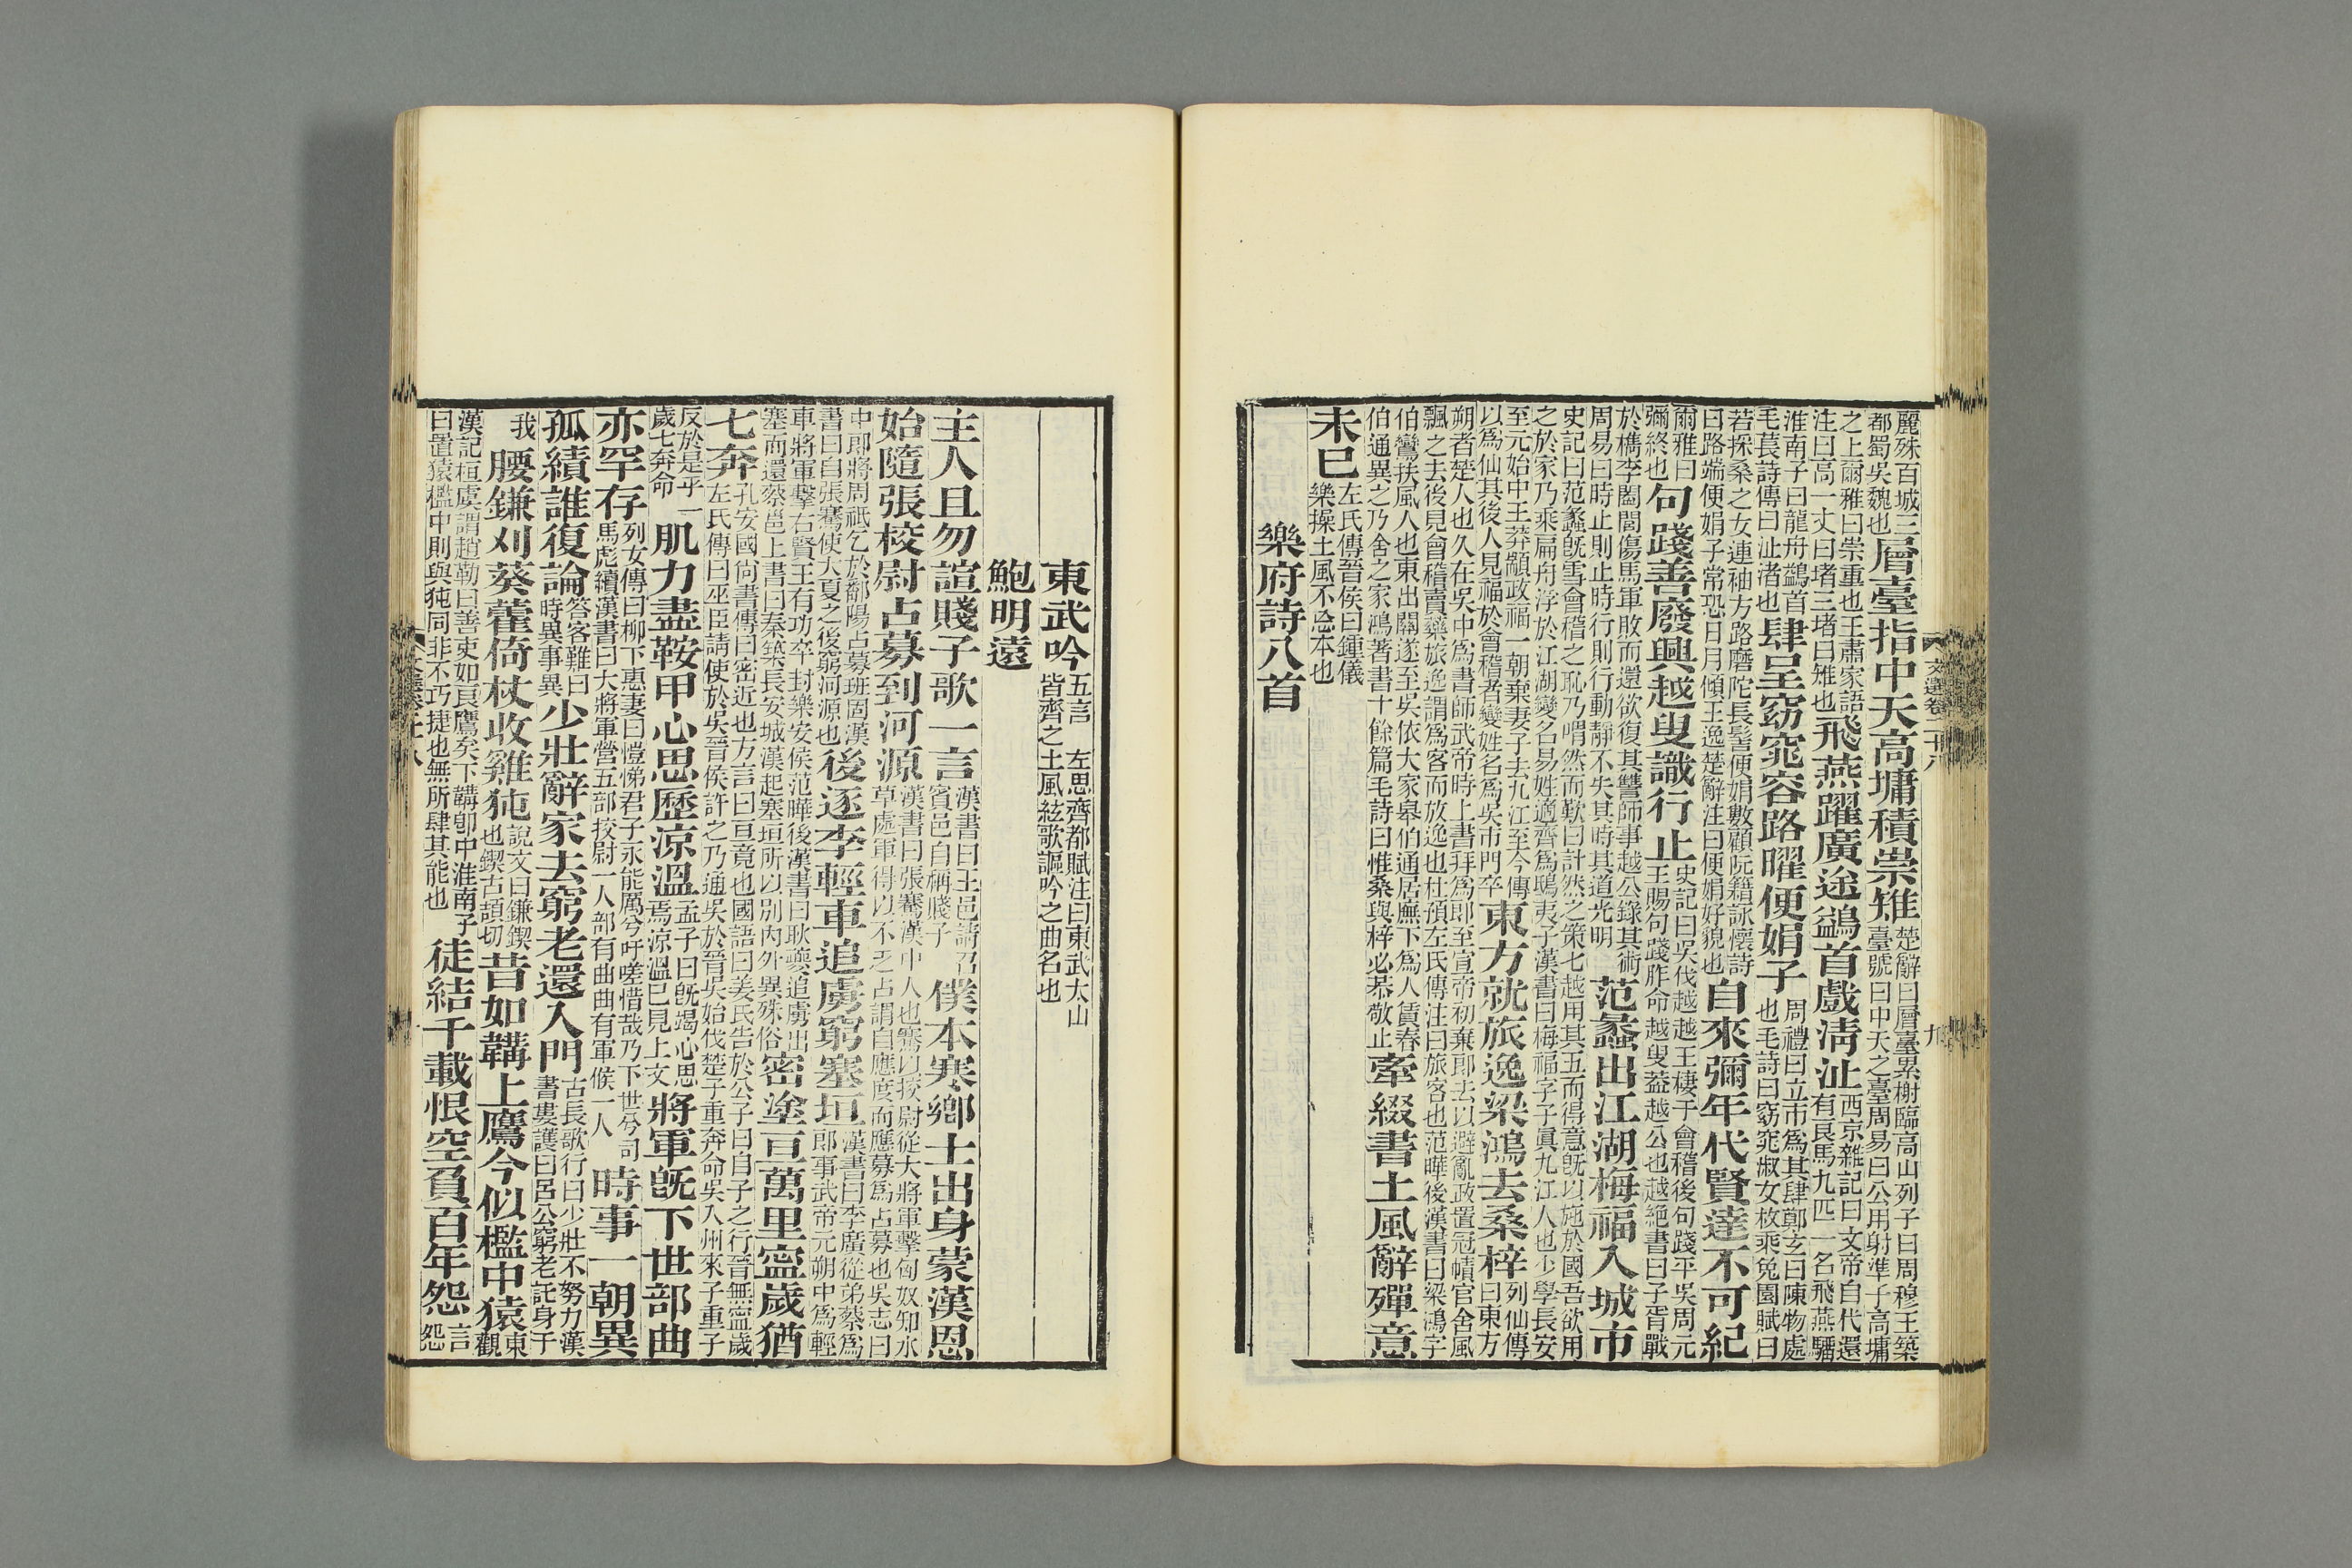 麗殊百城三都蜀吳魏也層臺指中天高墉積崇雉楚辭曰層臺累榭臨高山列子曰周穆王築臺號曰中天之臺周易曰公用射準于高墉
之上爾雅曰崇重也王肅家語注曰高一丈曰堵三堵曰雉也飛燕躍廣途鷁首戲清沚西京雜記曰文帝自代還有良馬九匹一名飛燕驑
淮南子曰龍舟鷁首毛萇詩傳曰沚渚也肆呈窈窕容路曜便娟子周禮曰立市爲其肆鄭玄曰陳物處也毛詩曰窈窕淑女枚乘兔園賦曰
若採桑之女連袖方路磨陀長髻便娟數顧阮籍詠懷詩曰路端便娟子常恐日月傾王逸楚辭注曰便娟好貌也自來彌年代賢達不可紀
爾雅曰彌終也句踐善廢興越叟識行止史記曰吳伐越越王棲于會稽後句踐平吳周元王賜句踐胙命越叟蓋越公也越絕書曰子胥戰
於檇李闔閭傷馬軍敗而還欲復其讐師事越公錄其術周易曰時止則止時行則行動靜不失其時其道光明范蠡出江湖梅福入城市
史記曰范蠡旣雪會稽之恥乃喟然而歎曰計然之策七越用其五而得意旣以施於國吾欲用之於家乃乘扁舟浮於江湖變名易姓適齊爲鴟夷子漢書曰梅福字子眞九江人也少學長安
至元始中王莽顓政福一朝棄妻子去九江至今傳以爲仙其後人見福於會稽者變姓名爲吳市門卒東方就旅逸梁鴻去桑梓列仙傳曰東方
朔者楚人也久在吳中爲書師武帝時上書拜爲郎至宣帝初棄郎去以避亂政置冠幘官舍風飄之去後見會稽賣藥旅逸謂爲客而放逸也杜預左氏傳注曰旅客也范曄後漢書曰梁鴻字
伯鸞扶風人也東出關遂至吳依大家皋伯通居廡下爲人賃舂伯通異之乃舍之家鴻著書十餘篇毛詩曰惟桑與梓必恭敬止牽綴書土風辭殫意
未已左氏傳晉侯曰鍾儀樂操土風不忘本也
樂府詩八首
文選卷二十八
九
東武吟五言 左思齊都賦注曰東武太山皆齊之土風絃歌謳吟之曲名也
鮑明遠
主人且勿諠賤子歌一言漢書曰王邑請召賓邑自稱賤子僕本寒鄉士出身蒙漢恩
始隨張校尉占募到河源漢書曰張騫漢中人也騫以校尉從大將軍擊匈奴知水草處軍得以不乏占謂自應度而應募爲占募也吳志曰
中郎將周祗乞於鄱陽占募班固漢書曰自張騫使大夏之後窮河源也後逐李輕車追虜窮塞垣漢書曰李廣從弟蔡爲郎事武帝元朔中爲輕
車將軍擊右賢王有功卒封樂安侯范曄後漢書曰耿夔追虜出塞而還蔡邕上書曰秦築長安城漢起塞垣所以別內外異殊俗密塗亘萬里寧歲猶
七奔孔安國尚書傳曰密近也方言曰亘竟也國語曰姜氏告於公子曰自子之行晉無寧歲左氏傳曰巫臣請使於吳晉侯許之乃通吳於晉吳始伐楚子重奔命吳入州來子重子
反於是乎一歲七奔命肌力盡鞍甲心思歷涼溫孟子曰旣竭心思焉涼溫已見上文將軍旣下世部曲
亦罕存列女傳曰柳下惠妻曰愷悌君子永能厲兮吁嗟惜哉乃下世兮司馬彪續漢書曰大將軍營五部校尉一人部有曲曲有軍候一人時事一朝異
孤績誰復論答客難曰時異事異少壯辭家去窮老還入門古長歌行曰少壯不努力漢書婁護曰呂公窮老託身于
我腰鎌刈葵藿倚杖收雞㹠說文曰鎌鍥也鍥古頡切昔如鞲上鷹今似檻中猿東觀
漢記桓虞謂趙勒曰善吏如良鷹矣下鞲卽中淮南子曰置猿檻中則與㹠同非不巧捷也無所肆其能也徒結千載恨空負百年怨言怨